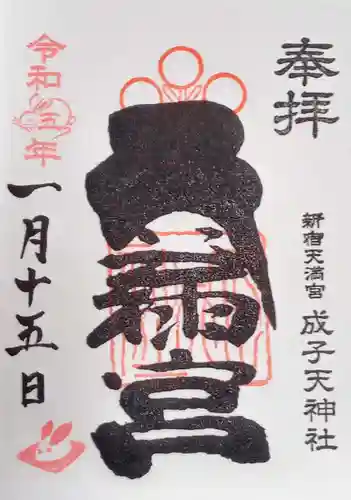 奉拝
新宿天満宮
成子天神社
天満宮
令和三年
一月十五日